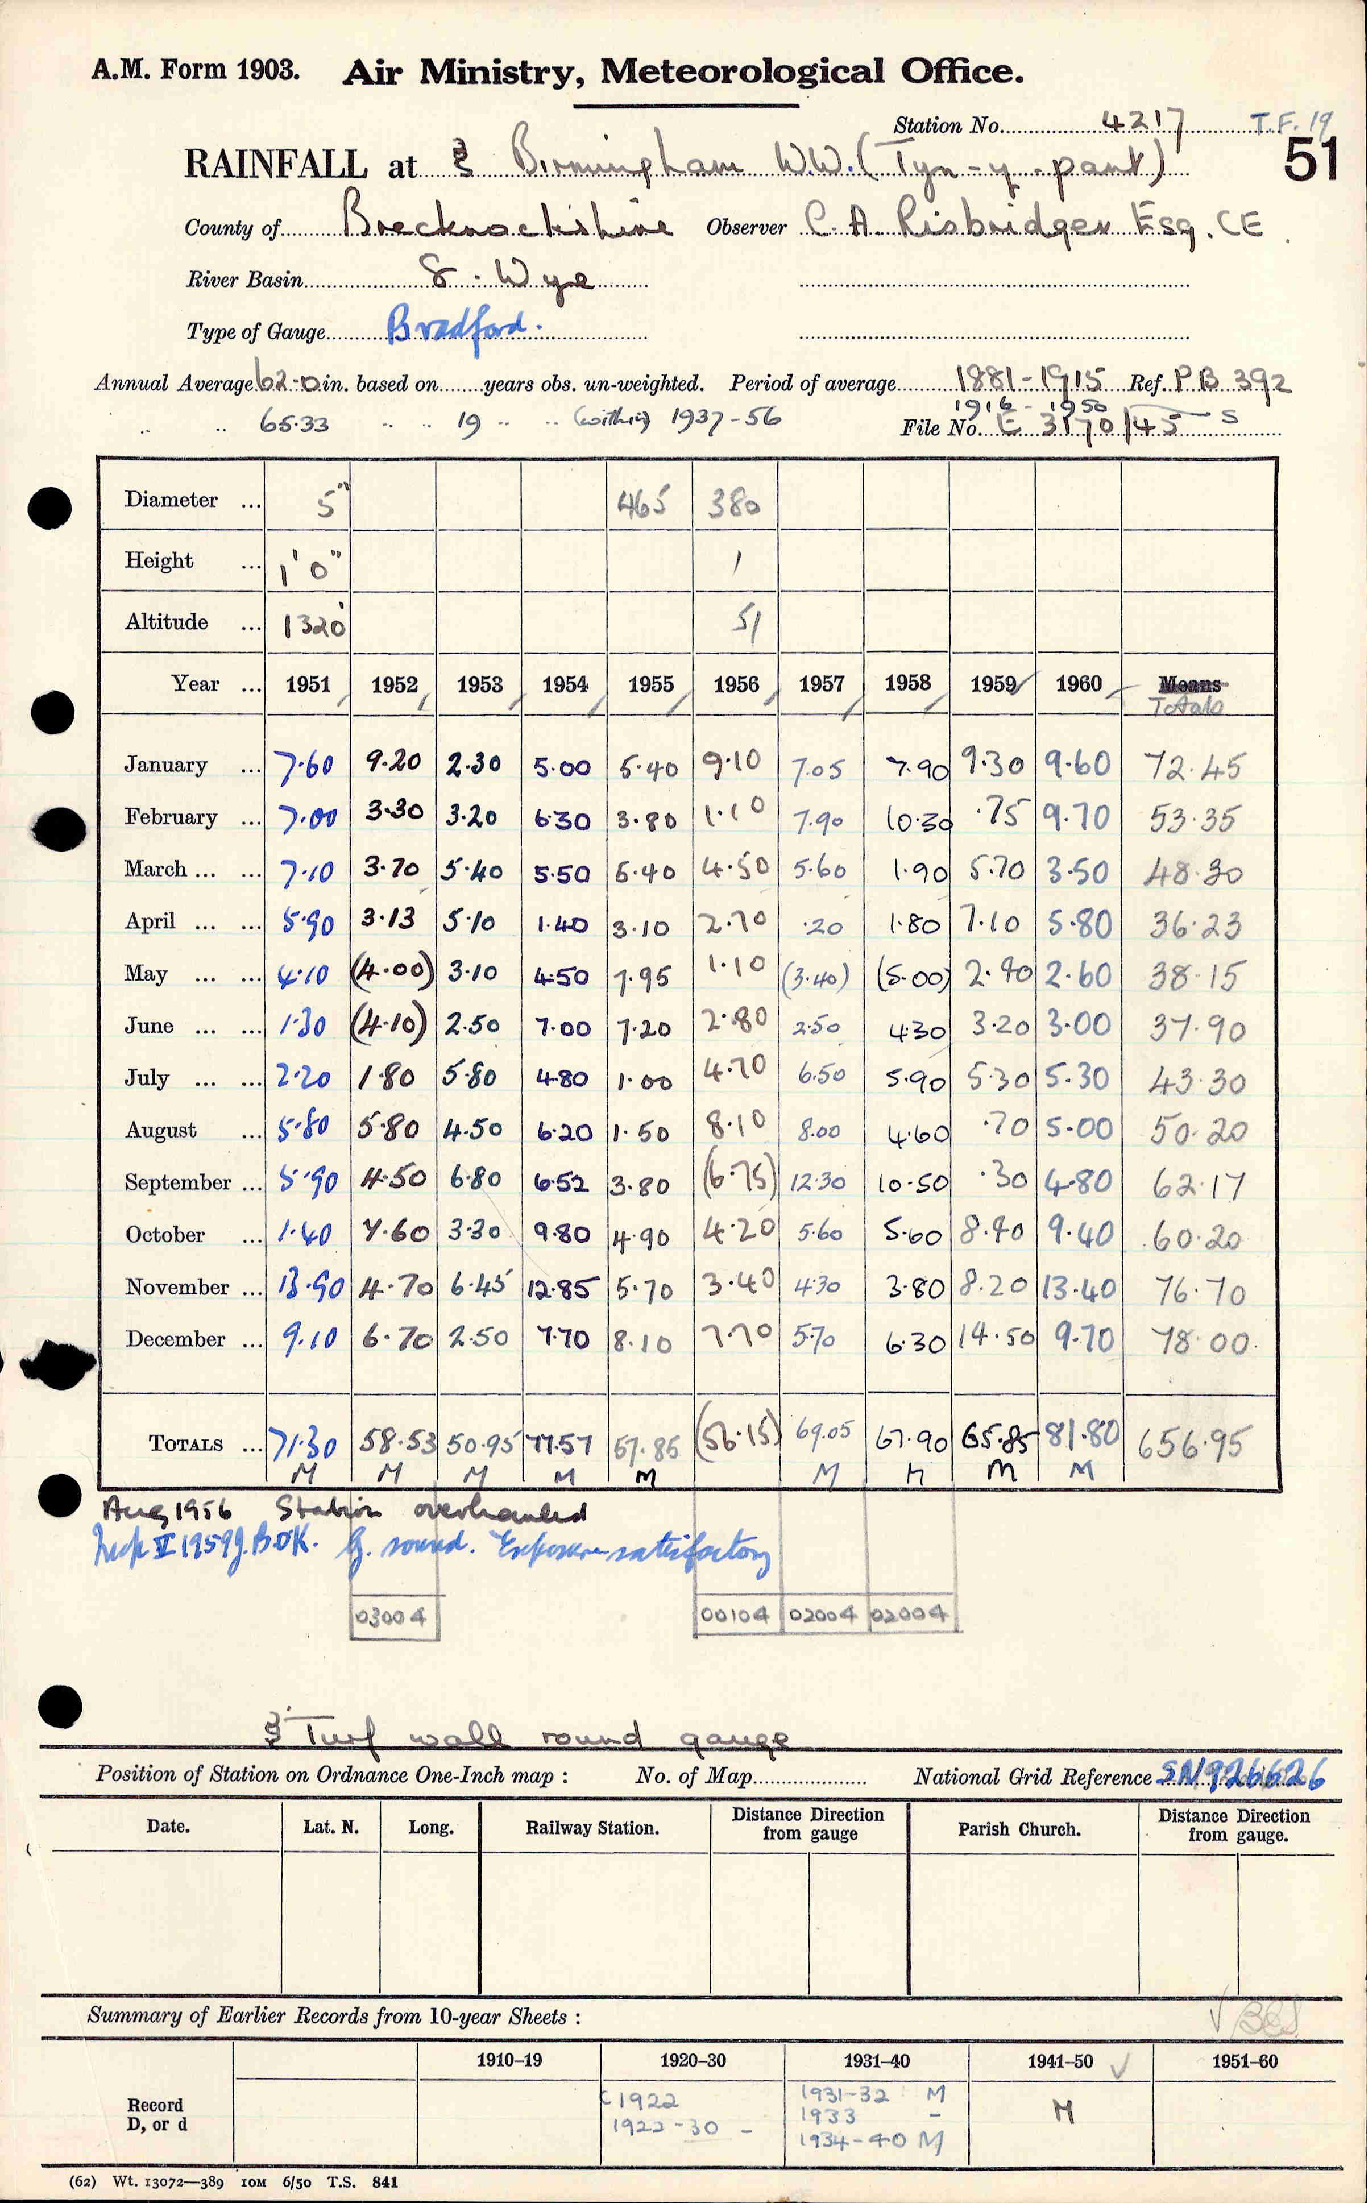 A.M. Form 1903. Air Ministry, Meteorological Office.
Station No. 4217 T.F. 19
51
RAINFALL at Birmingham W.W. (Tyn-y-pant)
County of Brecknockshire Observer C. A. Risbridger Esq. CE
River Basin 8. Wye
Type of Gauge Bradford.
Annual Average 62.0 in. based on ...... years obs. un-weighted. Period of average 1881-1915 Ref. P.B 392
1916-1950
.. .. 65.33 .. .. 19 .. .. (within) 1937-56 File No. E 3170/45 S
Diameter ... 5" 465 380
Height ... 1'0" 1
Altitude ... 1320' 51
Year ... 1951 1952 1953 1954 1955 1956 1957 1958 1959 1960 Means
Totals
January ... 7.60 9.20 2.30 5.00 5.40 9.10 7.05 7.90 9.30 9.60 72.45
February ... 7.00 3.30 3.20 6.30 3.80 1.10 7.90 10.30 .75 9.70 53.35
March ... ... 7.10 3.70 5.40 5.50 5.40 4.50 5.60 1.90 5.70 3.50 48.30
April ... ... 5.90 3.13 5.10 1.40 3.10 2.70 .20 1.80 7.10 5.80 36.23
May ... ... 4.10 (4.00) 3.10 4.50 7.95 1.10 (3.40) (5.00) 2.40 2.60 38.15
June ... ... 1.30 (4.10) 2.50 7.00 7.20 2.80 2.50 4.30 3.20 3.00 37.90
July ... ... 2.20 1.80 5.80 4.80 1.00 4.70 6.50 5.90 5.30 5.30 43.30
August ... 5.80 5.80 4.50 6.20 1.50 8.10 8.00 4.60 .70 5.00 50.20
September ... 5.90 4.50 6.80 6.52 3.80 (6.75) 12.30 10.50 .30 4.80 62.17
October ... 1.40 7.60 3.30 9.80 4.90 4.20 5.60 5.60 8.40 9.40 60.20
November ... 13.90 4.70 6.45 12.85 5.70 3.40 4.30 3.80 8.20 13.40 76.70
December ... 9.10 6.70 2.50 7.70 8.10 7.70 5.70 6.30 14.50 9.70 78.00
TOTALS ... 71.30 58.53 50.95 77.57 57.85 (56.15) 69.05 67.90 65.85 81.80 656.95
M M M M M M M M M
Aug 1956 Station overhauled
Insp V 1959 J.B. OK. G. sound. Exposure satisfactory
03004 00104 02004 02004
Turf wall round gauge
Position of Station on Ordnance One-Inch map : No. of Map National Grid Reference SN926626
Date. Lat. N. Long. Railway Station. Distance Direction from gauge Parish Church. Distance Direction from gauge.
Summary of Earlier Records from 10-year Sheets :
1910–19 1920–30 1931–40 1941–50 1951–60
Record D, or d
1922 1931-32 M M
1922-30 - 1933 -
1934-40 M
(62) Wt. 13072—389 10M 6/50 T.S. 841